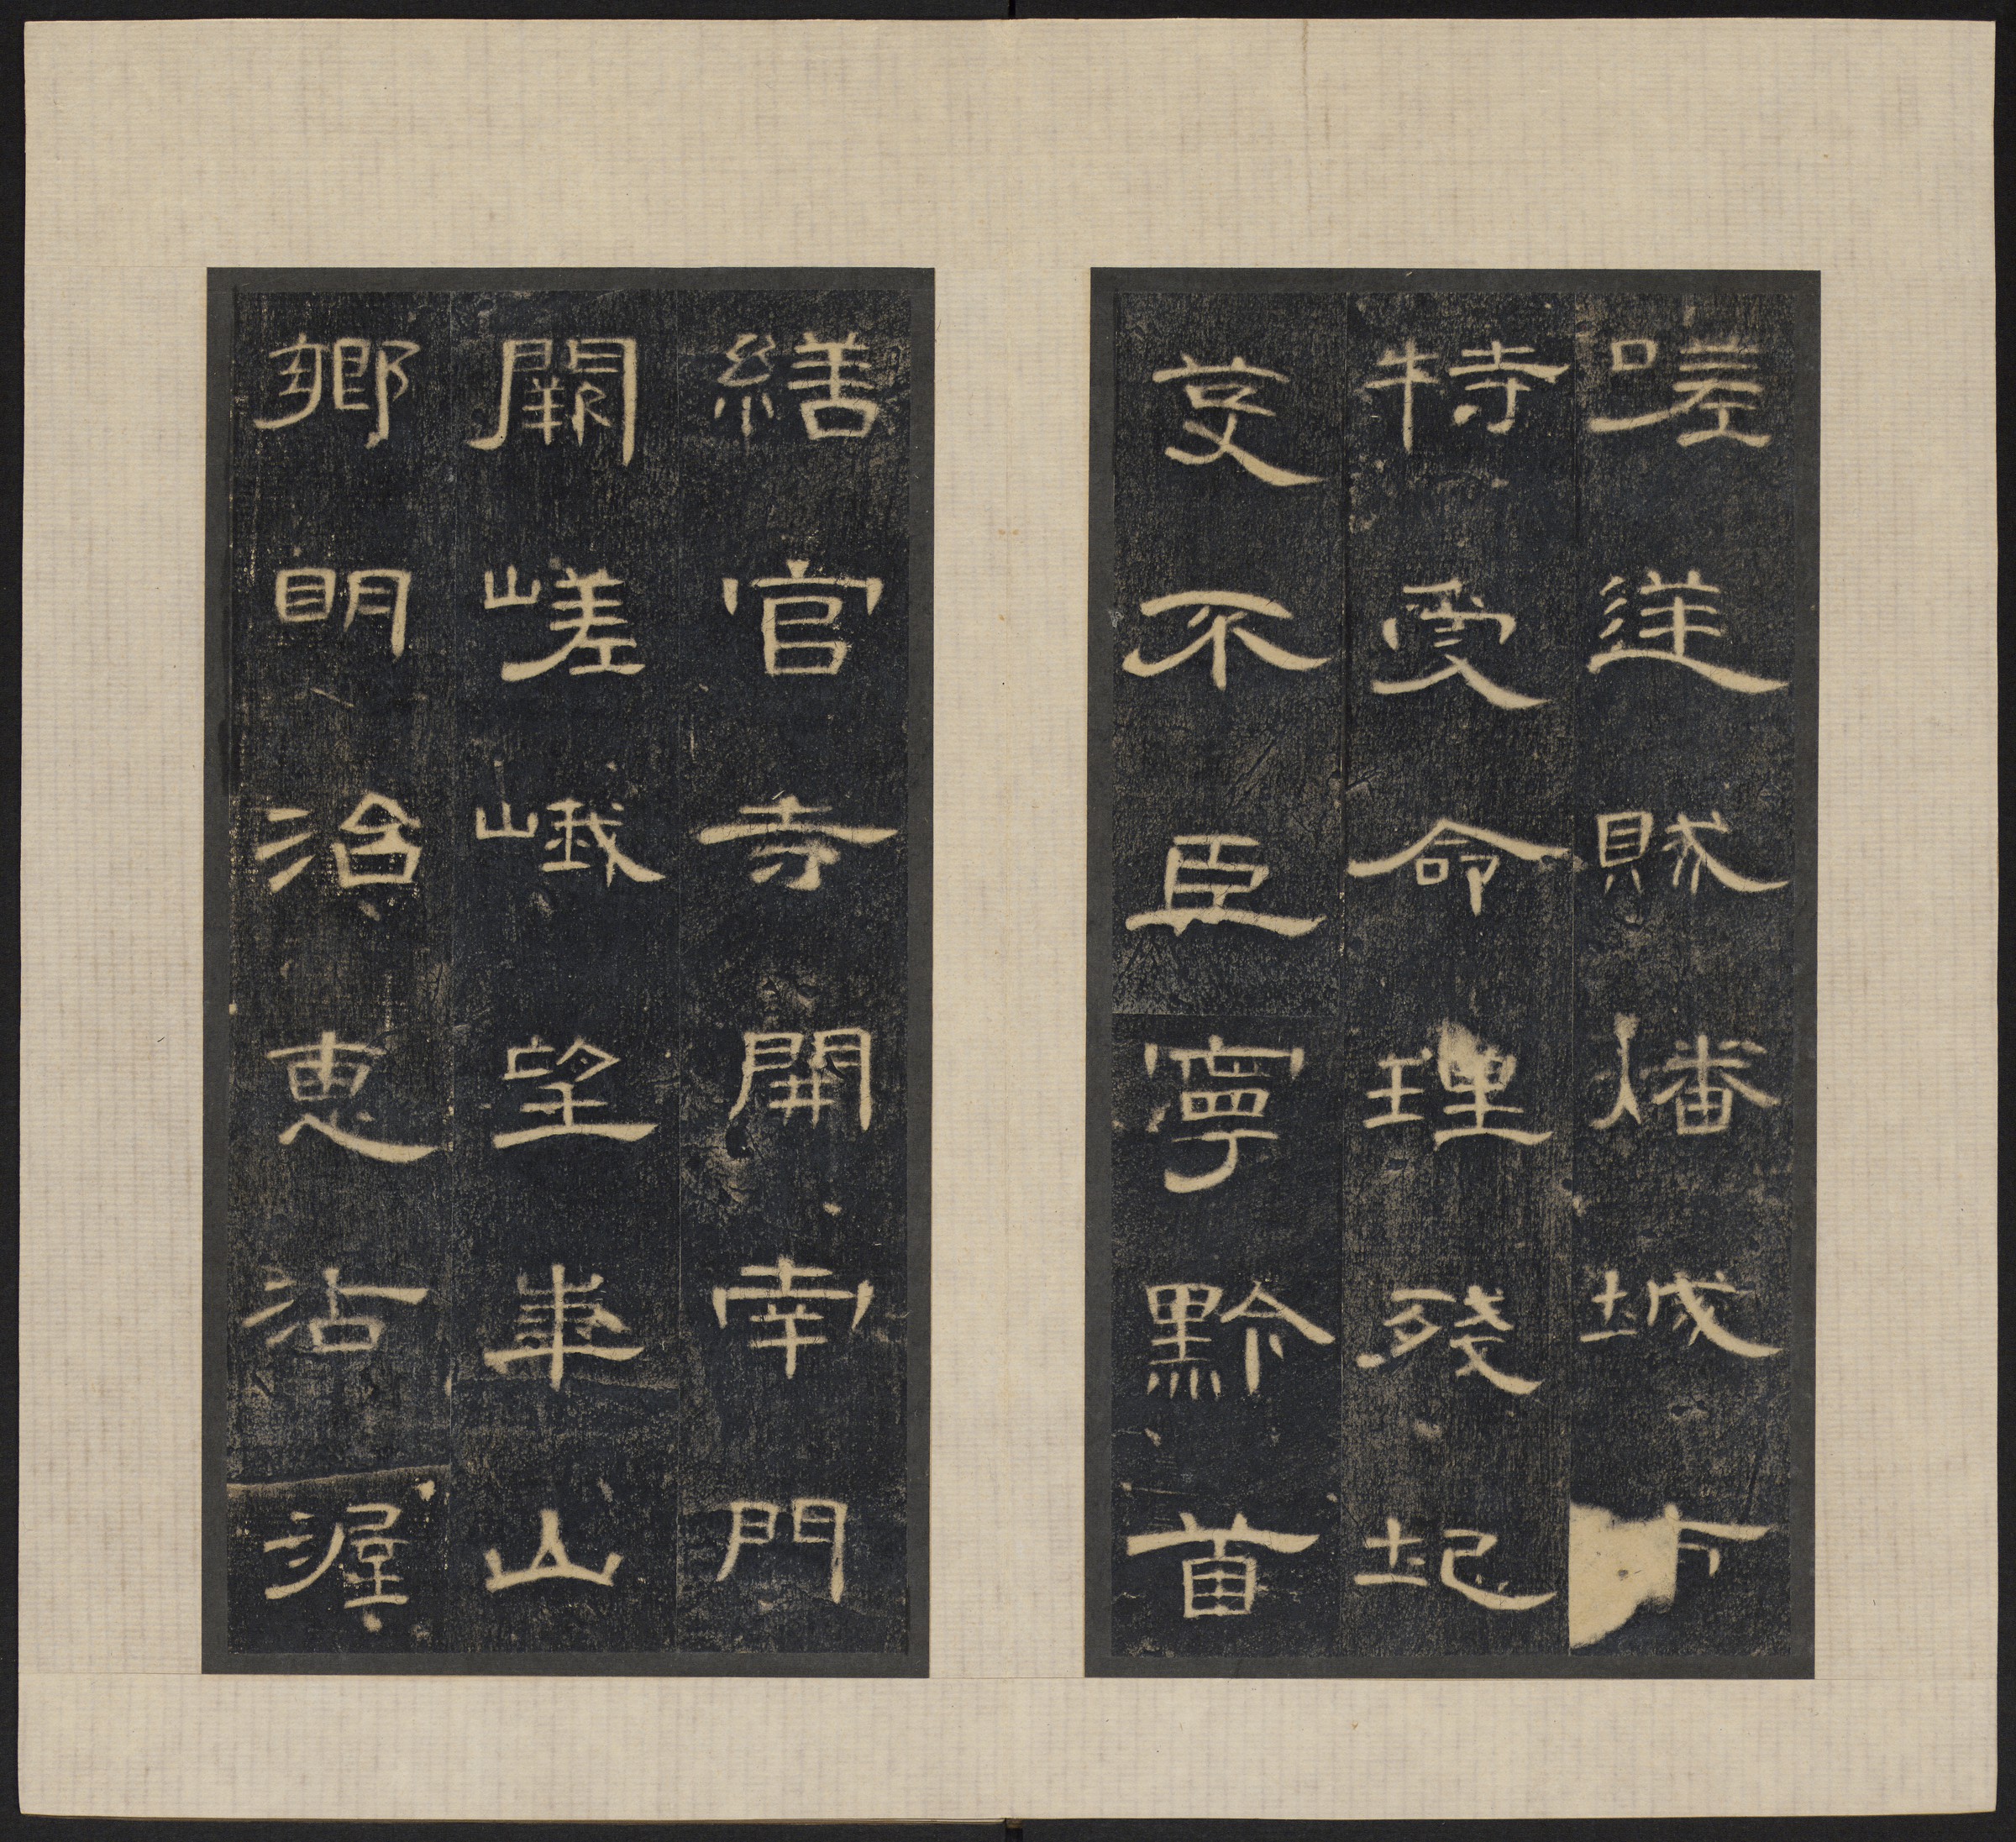 嗟逆賊燔城
特受命理殘圮
芟不臣寧黔首
繕官寺開南門
闕嵯峨望華山
鄉明治惠沾渥